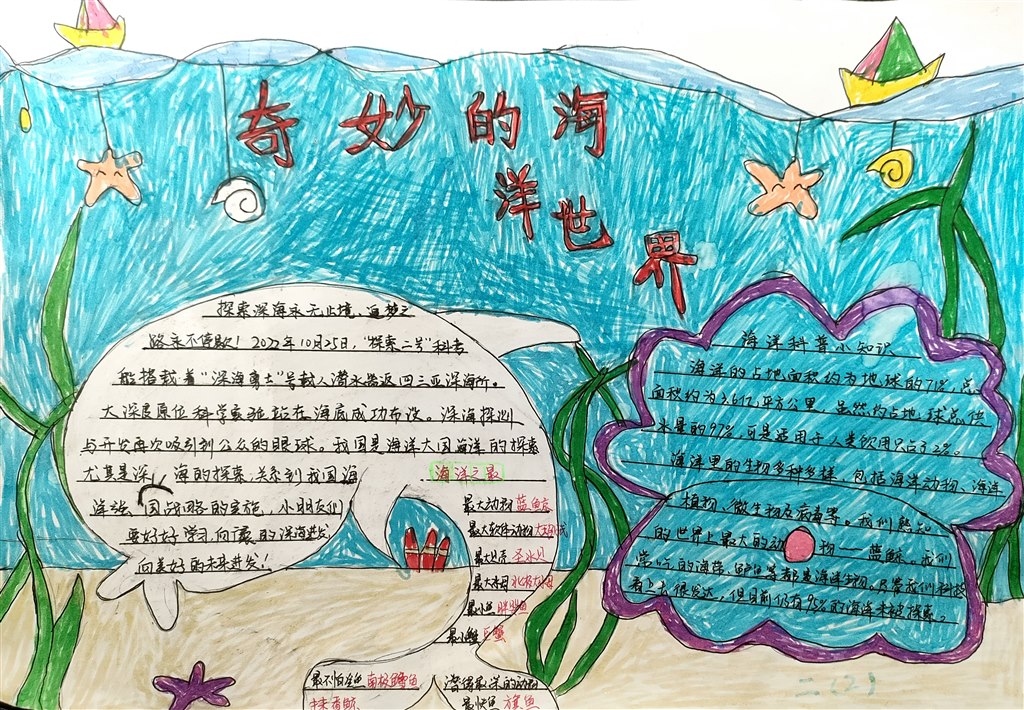 奇妙的海
洋世界
探索深海永无止境,追梦之
路永不停歇!2022年10月25日,“探索二号”科考
船搭载着“深海勇士”号载人潜水器返回三亚深海所。
大深度原位科学实验站在海底成功布设。深海探测
与开发再次吸引到公众的眼球。我国是海洋大国海洋的探索
尤其是深海的探索关系到我国海
洋强国战略的实施,小朋友们
要好好学习向 的深海进发
向美好的未来进发!
海洋之最
最大动物 蓝鲸
最大软体动物 大王
最大贝 圣水贝
最大水母 北极水母
最小鱼 胖婴鱼
最小蟹 豆蟹
最不怕冷鱼 南极鳕鱼
潜得最深的动物
抹香鲸
最快鱼 旗鱼
海洋科普小知识
海洋的占地面积约为地球的71%,总
面积约为3.6亿平方公里,虽然约占地球总供
水量的97%,可是适用于人类饮用只占2%。
海洋里的生物多种多样,包括海洋动物、海洋
植物、微生物及病毒等。我们熟知
的世界上最大的动物——蓝鲸。我们
常吃的海带、鲈鱼等都是海洋生物。尽管我们科技
看上去很发达,但目前仍有95%的海洋未被探索。
二(2)